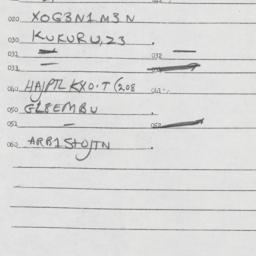 020 XOG3N1M3N
030 KUKURU,23 .
032 — 032 —
033 —
040 HAJPTL KXO·T (208 041
050 GL8EMBU .
052 — 052
060 ARB1STOJTN .